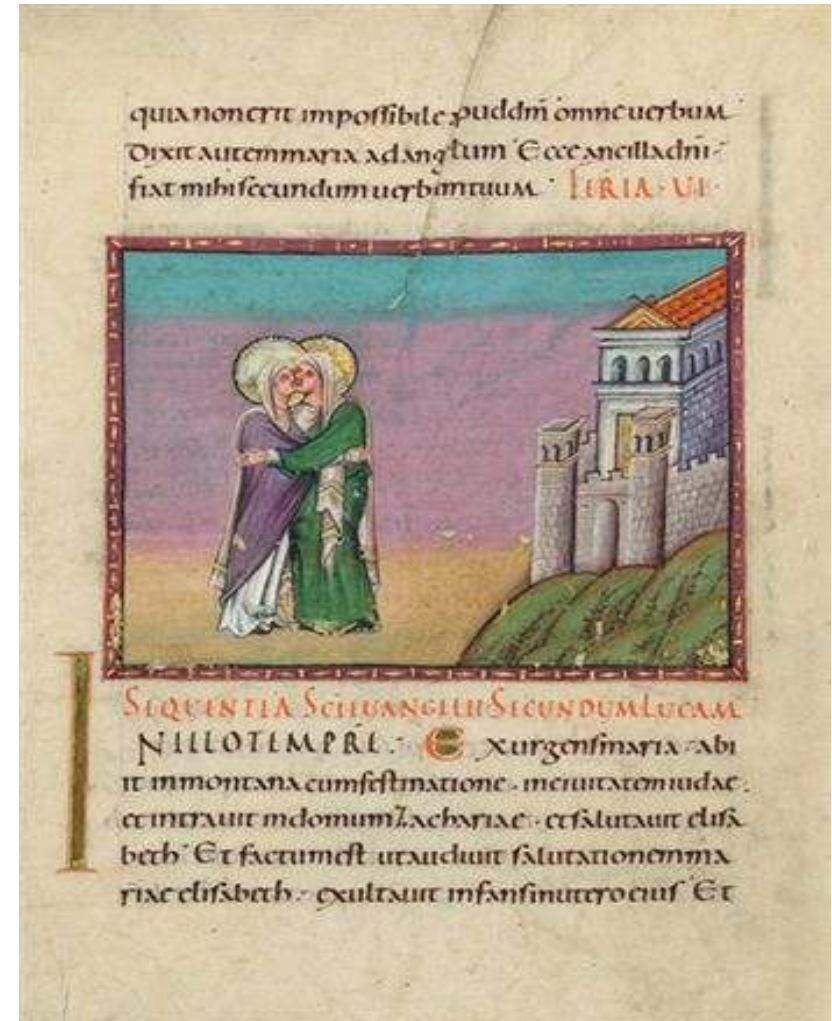 quia non erit impossibile apud dm̄ omne uerbum
Dixit autem maria ad angłum Ecce ancilla dn̄i·
fiat mihi secundum uerbum tuum · FERIA · VI·
SEQUENTIA SCI EUANGELII SECUNDUM LUCAM
IN ILLO TEMPRE. Exurgens maria · abi
it in montana cum festinatione · in ciuitatem iudae.
et intrauit in domum Zachariae · et salutauit elisa
beth · Et factum est ut audiuit salutationem ma
riae elisabeth · exultauit infans in utero eius Et